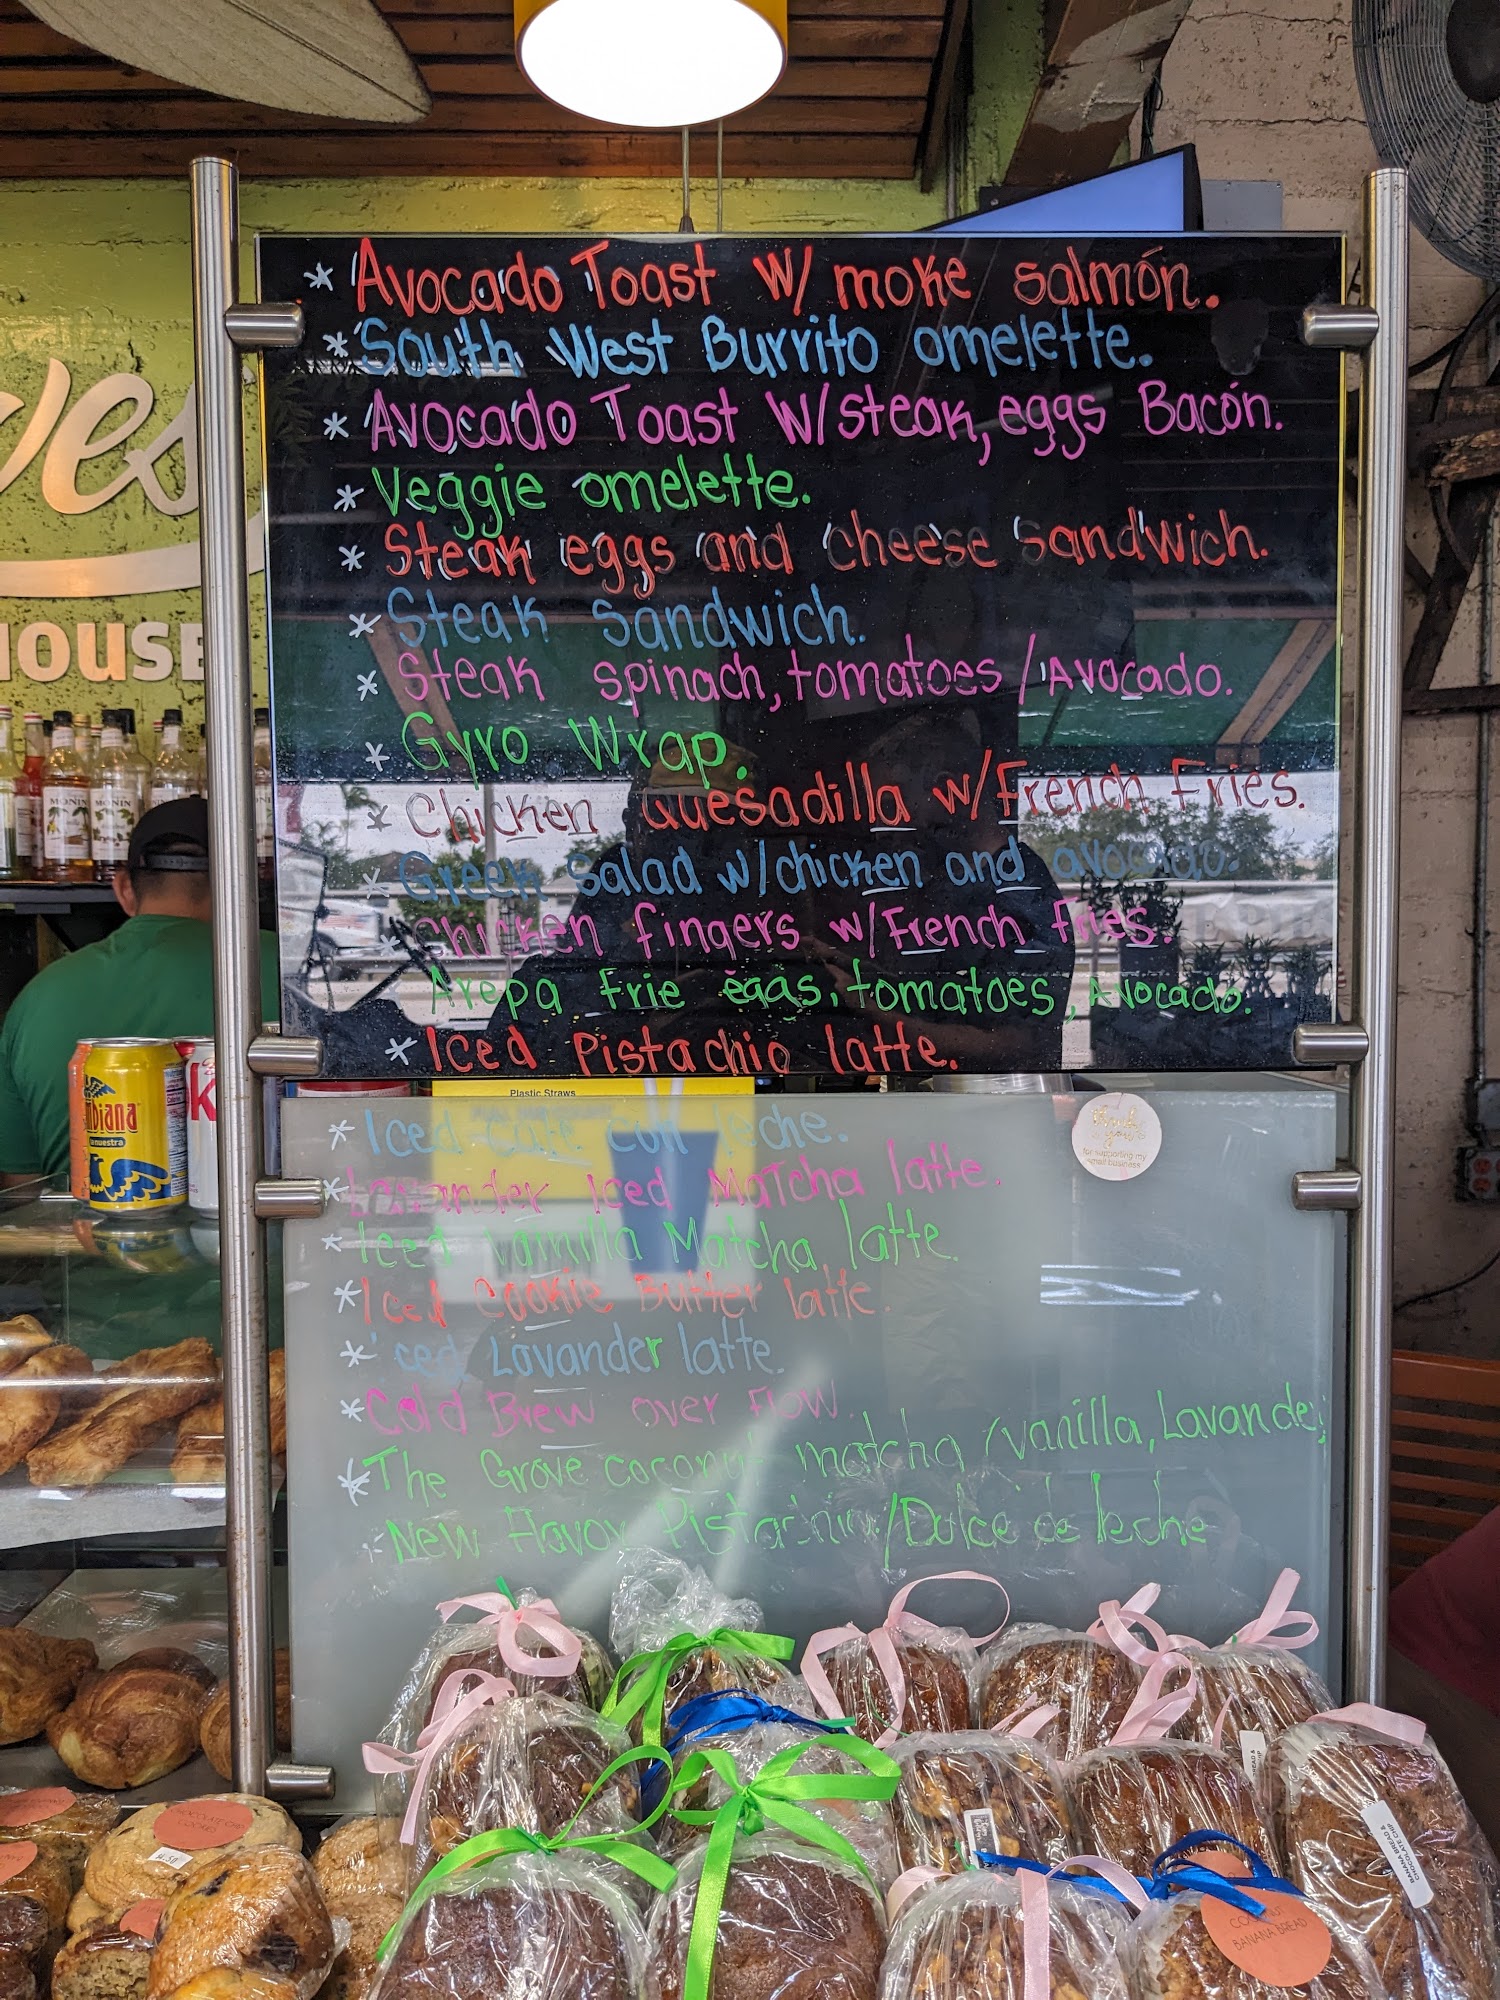 * Avocado Toast w/ moke salmón.
* South West Burrito omelette.
* Avocado Toast w/steak, eggs Bacón.
* Veggie omelette.
* Steak eggs and cheese sandwich.
* Steak Sandwich.
* Steak spinach, tomatoes / Avocado.
* Gyro Wrap.
* Chicken Quesadilla w/French Fries.
* Greek Salad w/chicken and avocado.
* Chicken fingers w/French Fries.
Arepa Frie eggs, tomatoes, Avocado.
* Iced Pistachio latte.
Plastic Straws
* Iced Café con leche.
* Lavander Iced Matcha latte.
* Iced Vainilla Matcha latte.
* Iced Cookie Butter latte.
* iced Lavander latte.
* Cold Brew over Flow.
* The Grove coconut matcha /vanilla, Lavander
* New Flavor Pistachio/Dulce de leche
thank you
for supporting my
small business
ves
HOUSE
MONIN
MONIN
nuestra
BANANA BREAD &
CHOCOLATE CHIP
COCONUT
BANANA BREAD